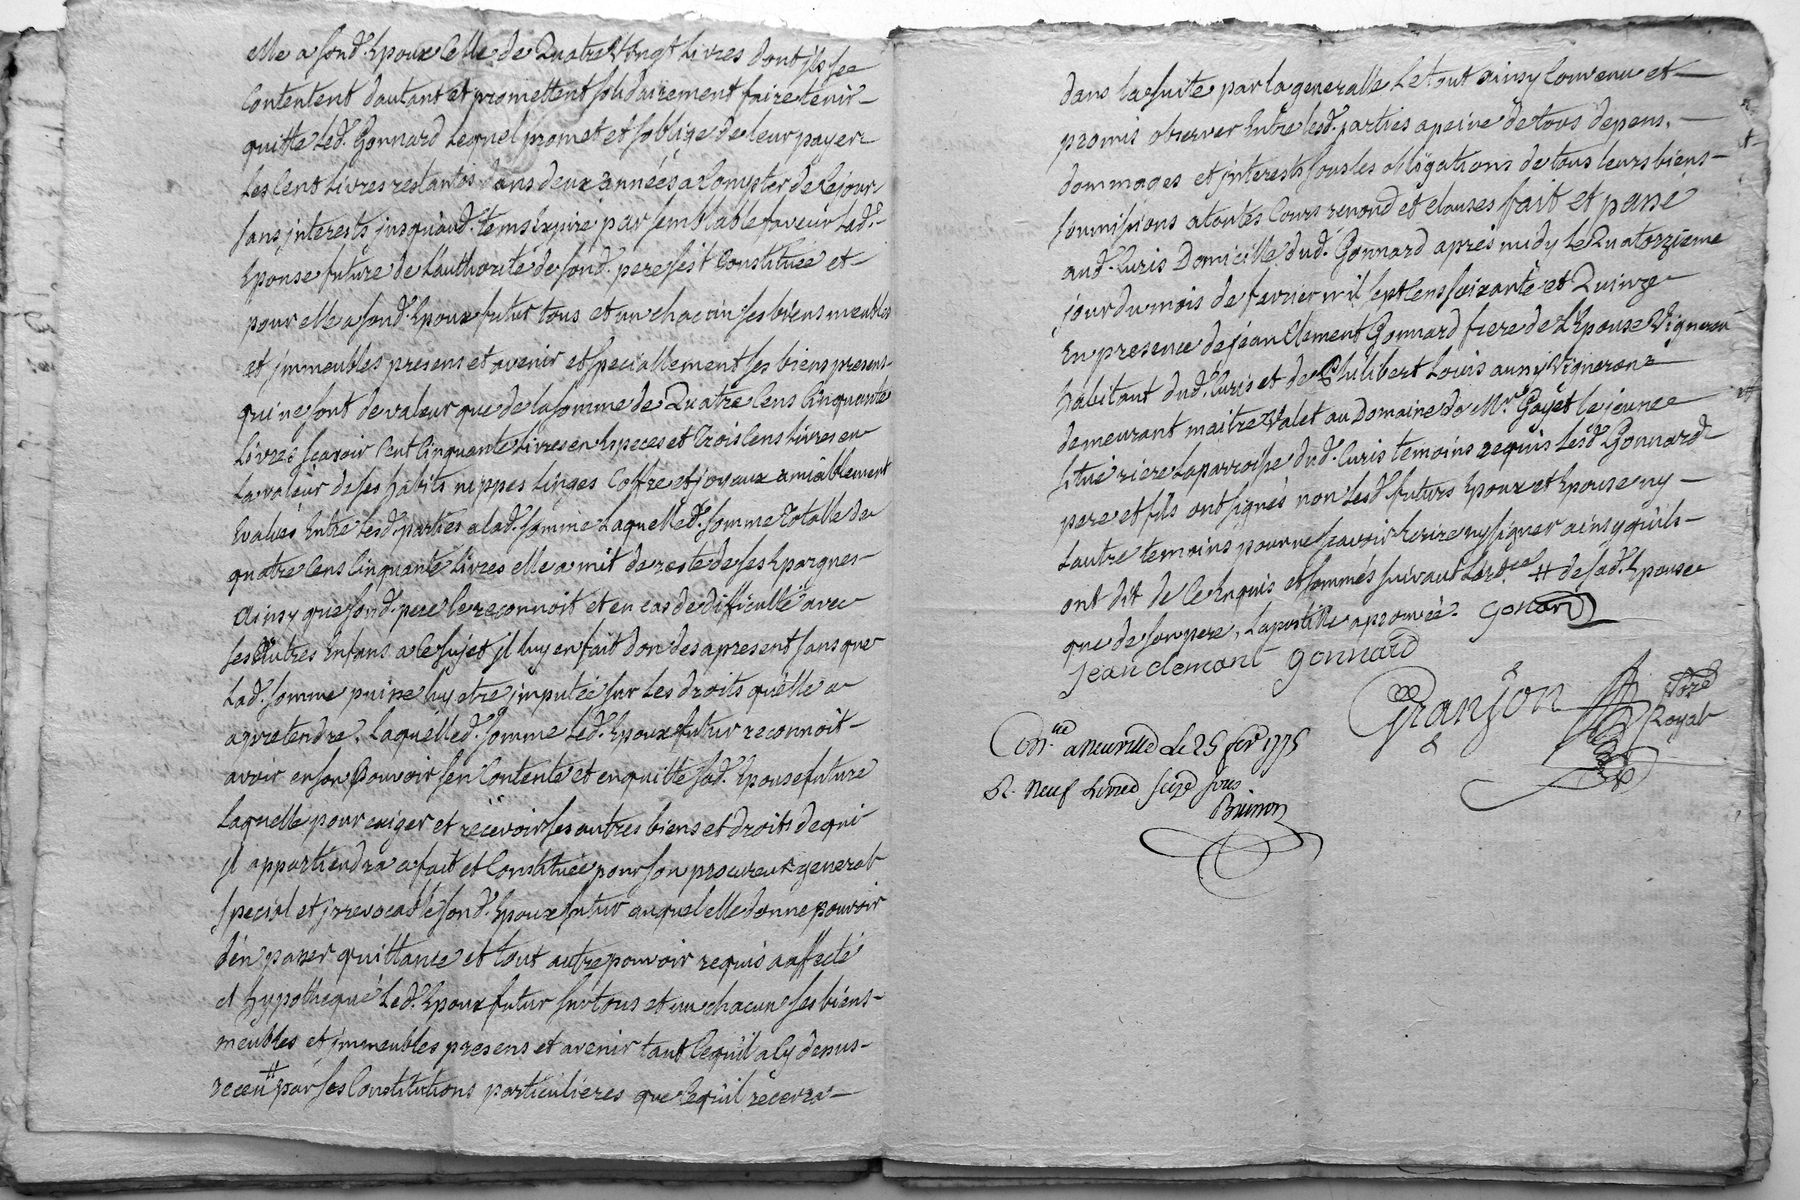 elle a sond. Epoux Celle de Quatre Vingt Livres dont ils se
Contentent d'autant et promettent solidairement faire tenir
quitte led. Gonnard Lequel promet et s'oblige de leur payer
Les Cent Livres restantes dans deux années a Compter de Cejour
sans jnterests jusqu'aud. tems Expiré par semblable faveur Lad.
Epouse future de L'authorité de sond. pere s'est Constituée et
pour elle a sond. Epoux futur tous et un chacun ses biens meubles
et jmmeubles presens et avenir et speciallement ses biens presens
qui ne sont de valeur que de la somme de Quatre Cens Cinquante
Livres scavoir Cent Cinquante Livres en Especes et Trois Cens Livres en
La valeur de ses habits nippes Linges Coffre et joyaux amiablement
Evalués Entre lesd. parties a lad. somme Laquelled. somme Totalle de
quatre Cens Cinquante livres elle a mit de reste de ses Epargnes
Ainsy que sond. pere le reconnoit et en cas de difficulté avec
ses Autres Enfans a Ce sujet jl luy en fait don des apresent sans que
Lad. somme puisse luy etre jmputée sur Les droits qu'elle a
a pretendre. Laquelled. somme Led. Epoux futur reconnoit
avoir en son Pouvoir s'en Contente et en quitte sad. Epouse future
Laquelle pour exiger et recevoir ses autres biens et droits de qui
jl appartiendra a fait et Constitué pour son procureur general
special et jrrevocable sond. Epoux futur auquel elle donne pouvoir
d'en passer quittance et tout autre pouvoir requis a affecté
et hypothequé Led. Epoux futur sur tous et un chacun ses biens
meubles et jmmeubles presens et avenir tant Ce qu'il a Cy dessus
receu # par ses Constitutions particulieres que Ce qu'il recevra
dans la suite par la generalle Le tout ainsy Convenu et
promis observer Entre lesd. parties a peine de tous depens.
dommages et jnterests sous les obligations de tous leurs biens
soumissions a toutes Cours renond et clauses fait et passé
aud. Curis Domicille dud. Gonnard après midy Le Quatorzieme
jour du mois de fevrier mil sept cens soixante et Quinze
En presence de jean Clement Gonnard frere de L'Epouse Vigneron
habitant dud. Curis et de Philibert Louis aussy Vigneron
demeurant maitre Valet au Domaine de Mr. Gayet le jeune
situé riere La parroisse dud. Curis temoins requis Lesd. Gonnard
pere et fils ont signés non Lesd. futurs Epoux et Epouse ny
L'autre temoins pour ne scavoir Ecrire ny signer ainsy qu'ils
ont dit de Ce Enquis et sommés suivant L'ordce # de sad. Epouse
que de son pere, Lapostille aprouvée. gonard
jean clemant gonnard
Granjon Nore
Royal
Con.lle a Neuville Le 25 fer 1775
R. Neuf Livres seize sous